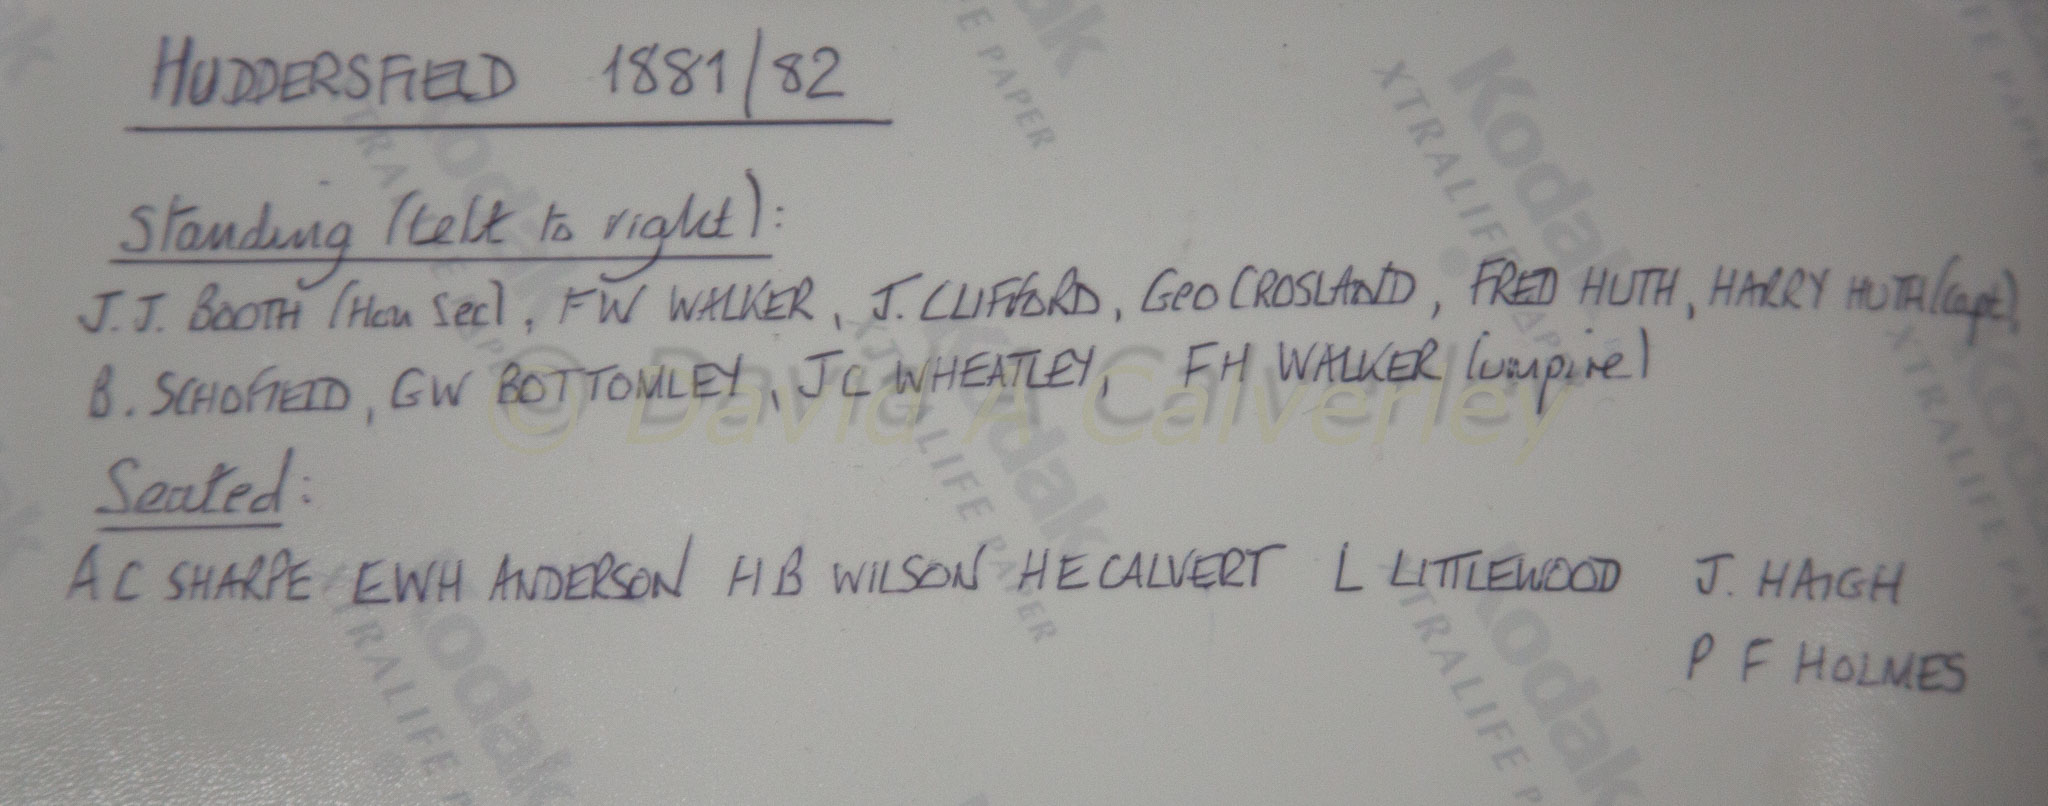 HUDDERSFIELD 1881/82
Standing (left to right):
J. J. BOOTH (Hon Sec), FW WALKER, J. CLIFFORD, Geo CROSLAND, FRED HUTH, HARRY HUTH (capt),
B. SCHOFIELD, GW BOTTOMLEY, JC WHEATLEY, FH WALKER (umpire)
© David A Calverley
Seated:
A C SHARPE EWH ANDERSON H B WILSON H E CALVERT L LITTLEWOOD J. HAIGH
P F HOLMES
Kodak
XTRALIFE PAPER
Kodak
XTRALIFE PAPER
Kodak
XTRALIFE PAPER
Kodak
XTRALIFE PAPER
Kodak
XTRALIFE